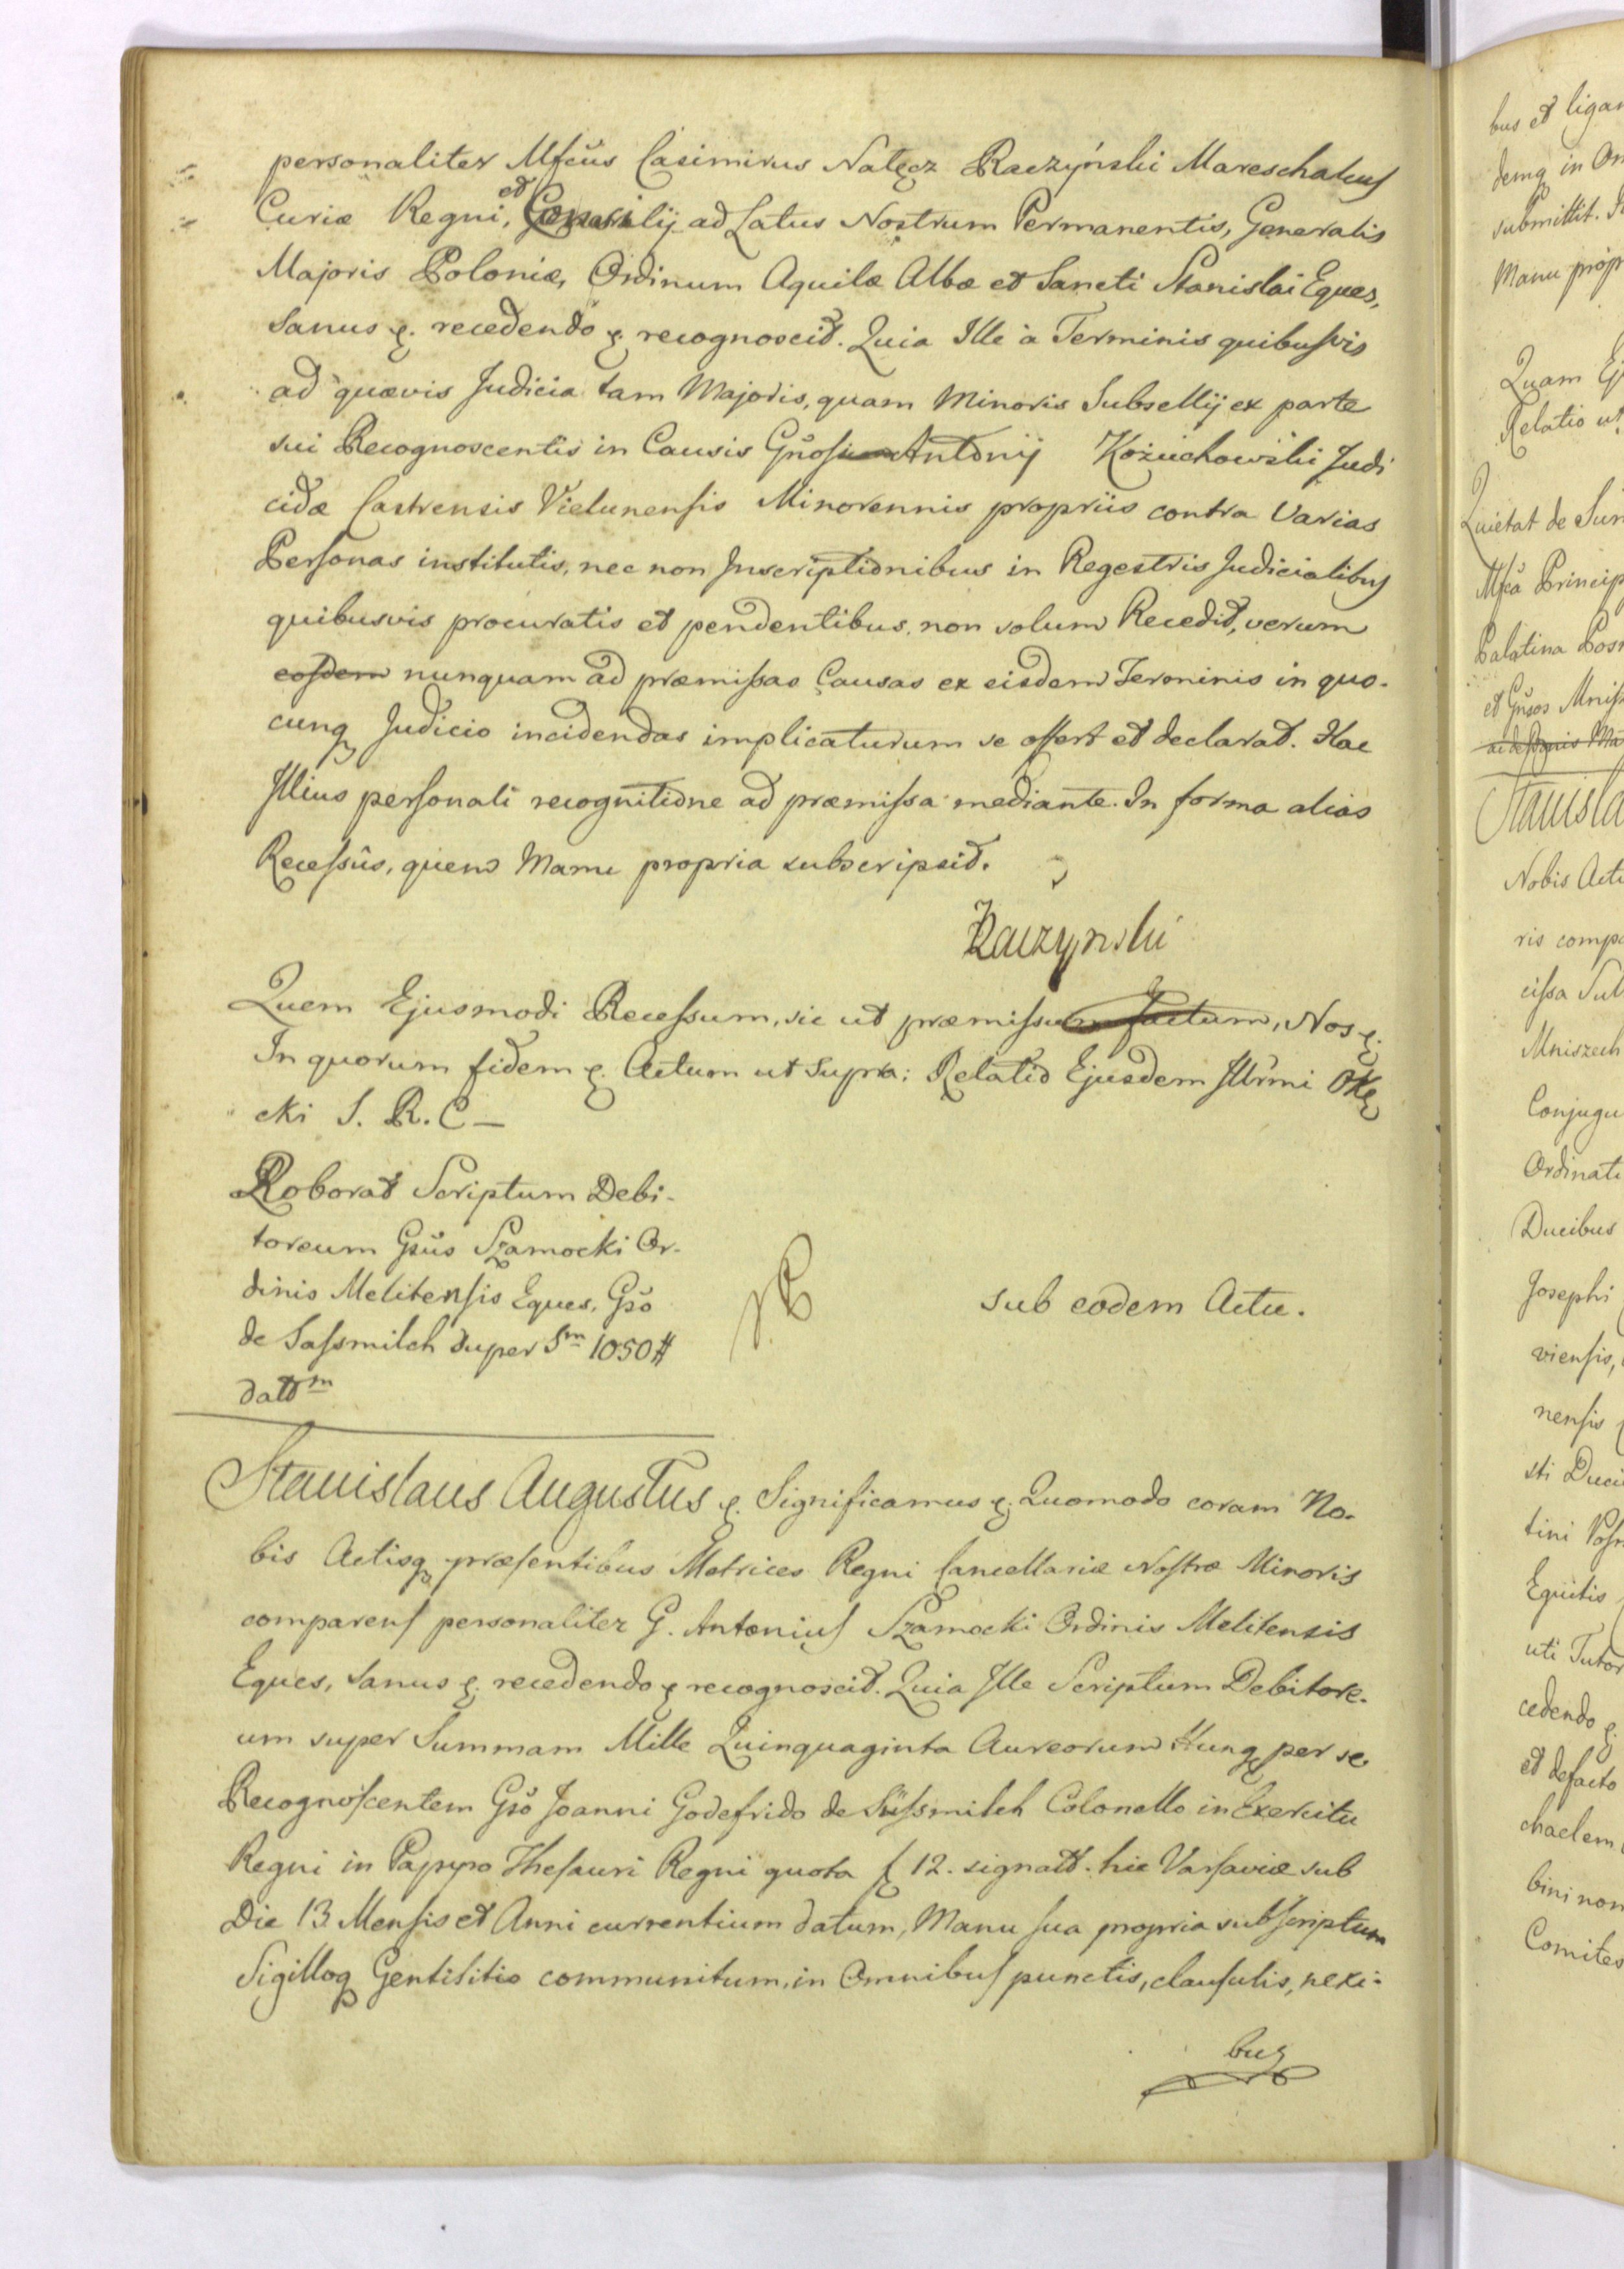 personaliter Mfcus Casimirus Nałęcz Raczyński Mareschalus
Curiæ Regni, et Consilij ad Latus Nostrum Permanentis, Generalis
Majoris Poloniæ, Ordinum Aquilæ Albæ et Sancti Stanislai Eques,
Sanus &. recedendo & recognoscit. Quia Ille à Terminis quibusvis
ad quævis Judicia tam Majoris, quam Minoris Subsellij ex parte
sui Recognoscentis in Causis Antonij Kożuchowski Judi
cidæ Castrensis Vielunensis Minorennis propriis contra Varias
Personas institutis, nec non Inscriptionibus in Regestris Judicialibus
quibusvis procuratis et pendentibus, non solum Recedit, verum
eosdem nunquam ad præmissas Causas ex eisdem Terminis in quo-
cunq Judicio incidendas implicaturum se offert et declarat. Hac
Illius personali recognitione ad præmissa mediante. In forma alias
Recessûs, quem Manu propria subscripsit.
Raczynski
Quem Ejusmodi Recessum, sic ut præmissum factum, Nos &.
In quorum fidem &. Actum ut Supra: Relatio Ejusdem Illrmi Okę
cki S. R. C –
Roborat Scriptum Debi-
toreum Gsus Szamocki Or-
dinis Melitensis Eques, Gso
de Sassmilch super Sm 1050 #
dattm
sub eodem Actu.
Stanislaus Augustus &. Significamus &. Quomodo coram No-
bis Actisq præsentibus Metrices Regni Cancellariæ Nostræ Minoris
comparens personaliter G. Antonius Szamocki Ordinis Melitensis
Eques, Sanus &. recedendo & recognoscit. Quia Ille Scriptum Debitore-
um super Summam Mille Quinquaginta Aureorum Hung per se
Recognoscentem Gso Joanni Godefrido de Süssmilch Colonello in Exercitu
Regni in Papyro Thesauri Regni quota f 12. signatt. hic Varsaviæ sub
Die 13 Mensis et Anni currentium datum, Manu sua propria subscriptum
Sigilloq Gentilitio communitum, in Omnibus punctis, clausulis, nexi-
bus
bus et ligam
demq in
submittit.
Manu prop
Quam Ej
Relatio ut
Quietat de Sum
Mfca Princip
Palatina Posn
et Gnsos Mnisz
Stanisla
Nobis Acti
ris comp
cissa Sul
Mniszech
Conjugu
Ordinati
Ducibus
Josephi
viensis,
nensis
sti Duci
tini Posn
Equitis
uti Tutor
cedendo &.
et defacto
chaelem
bini non
Comites